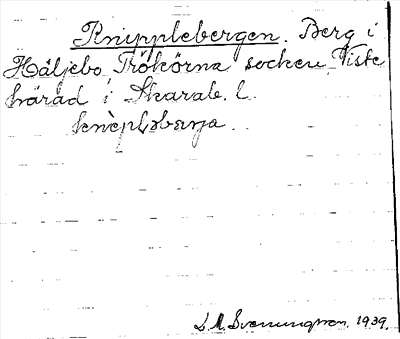 Knypplebergen. Berg i
Håljebo, Trökörna socken Viste
härad i Skarab. l.
knèpləbærja.
S. M. Svenungsson. 1939.